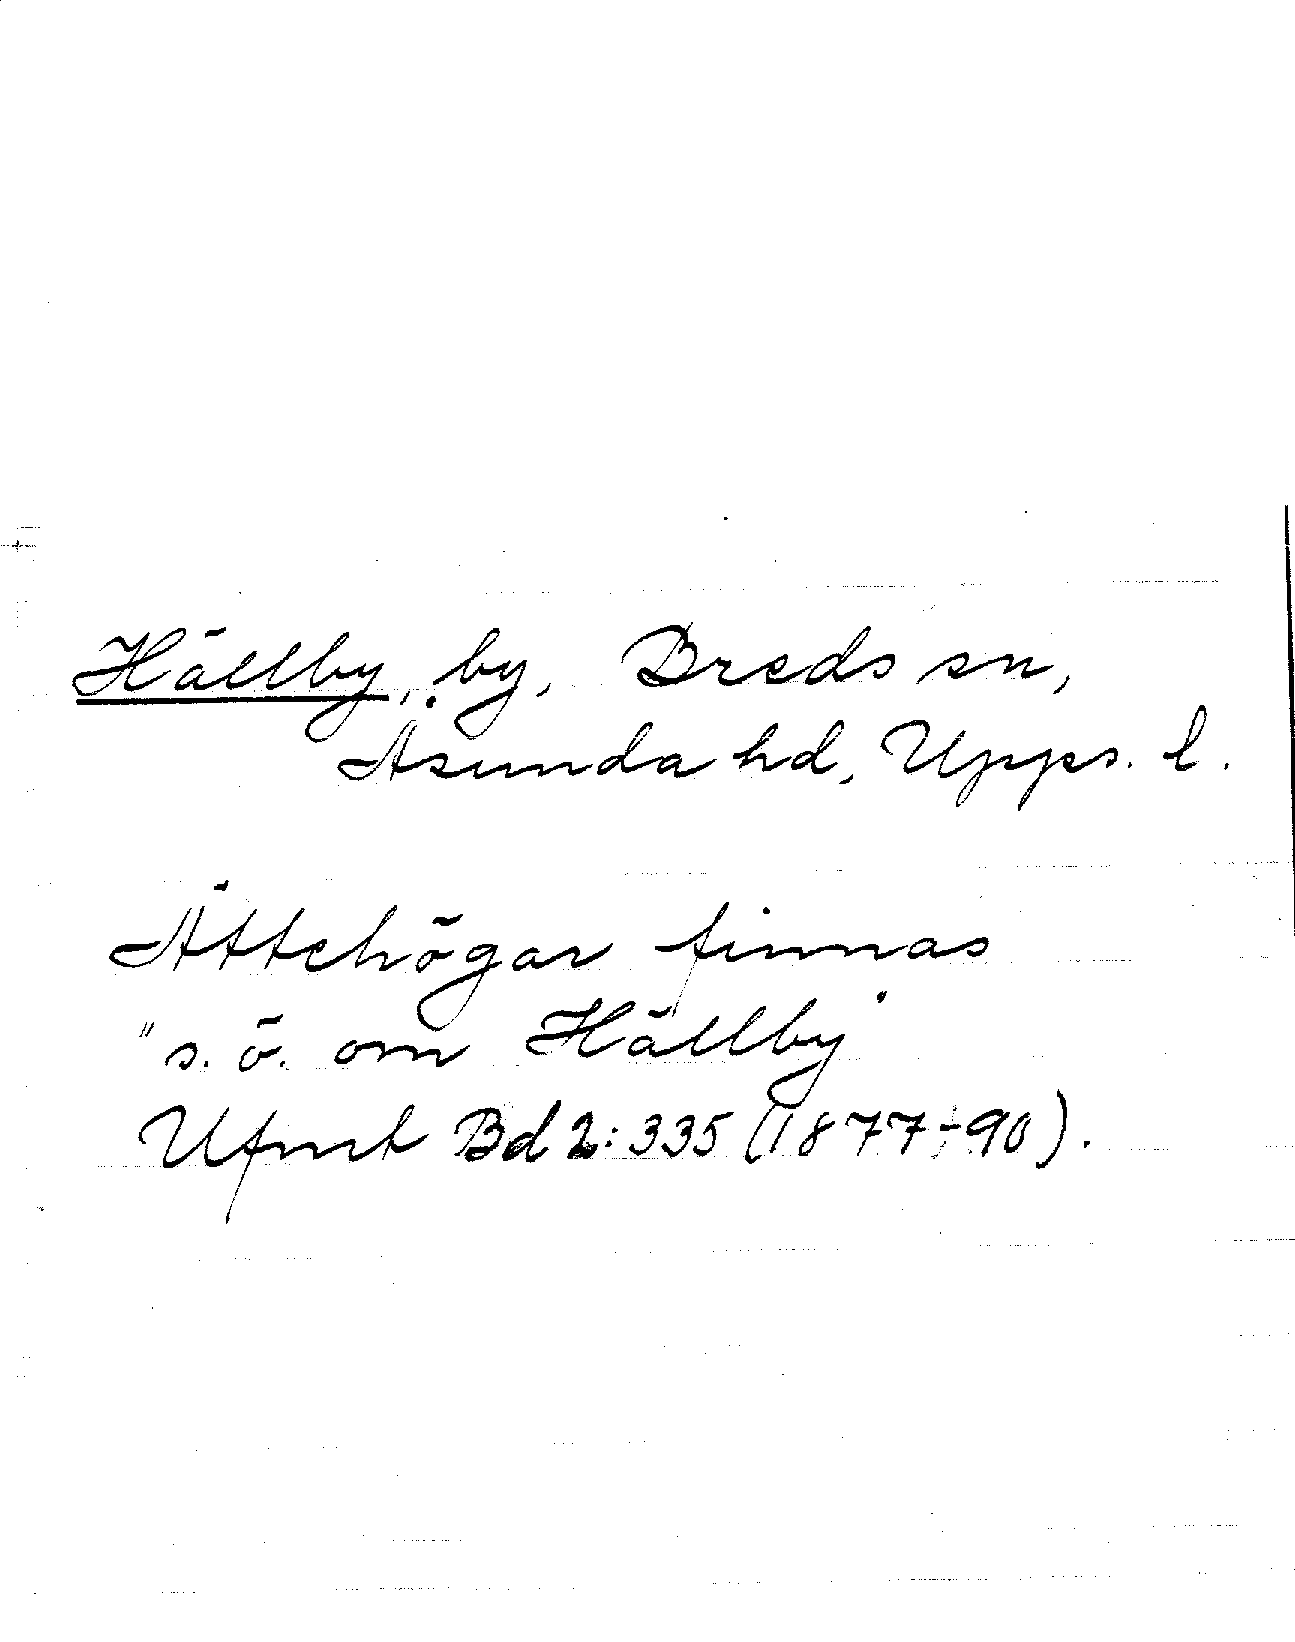 Hällby, by, Breds sn,
Åsunda hd, Upps. l.
Ättehögar finnas
"s. ö. om Hällby"
Ufmt Bd 2: 335 (1877-90).